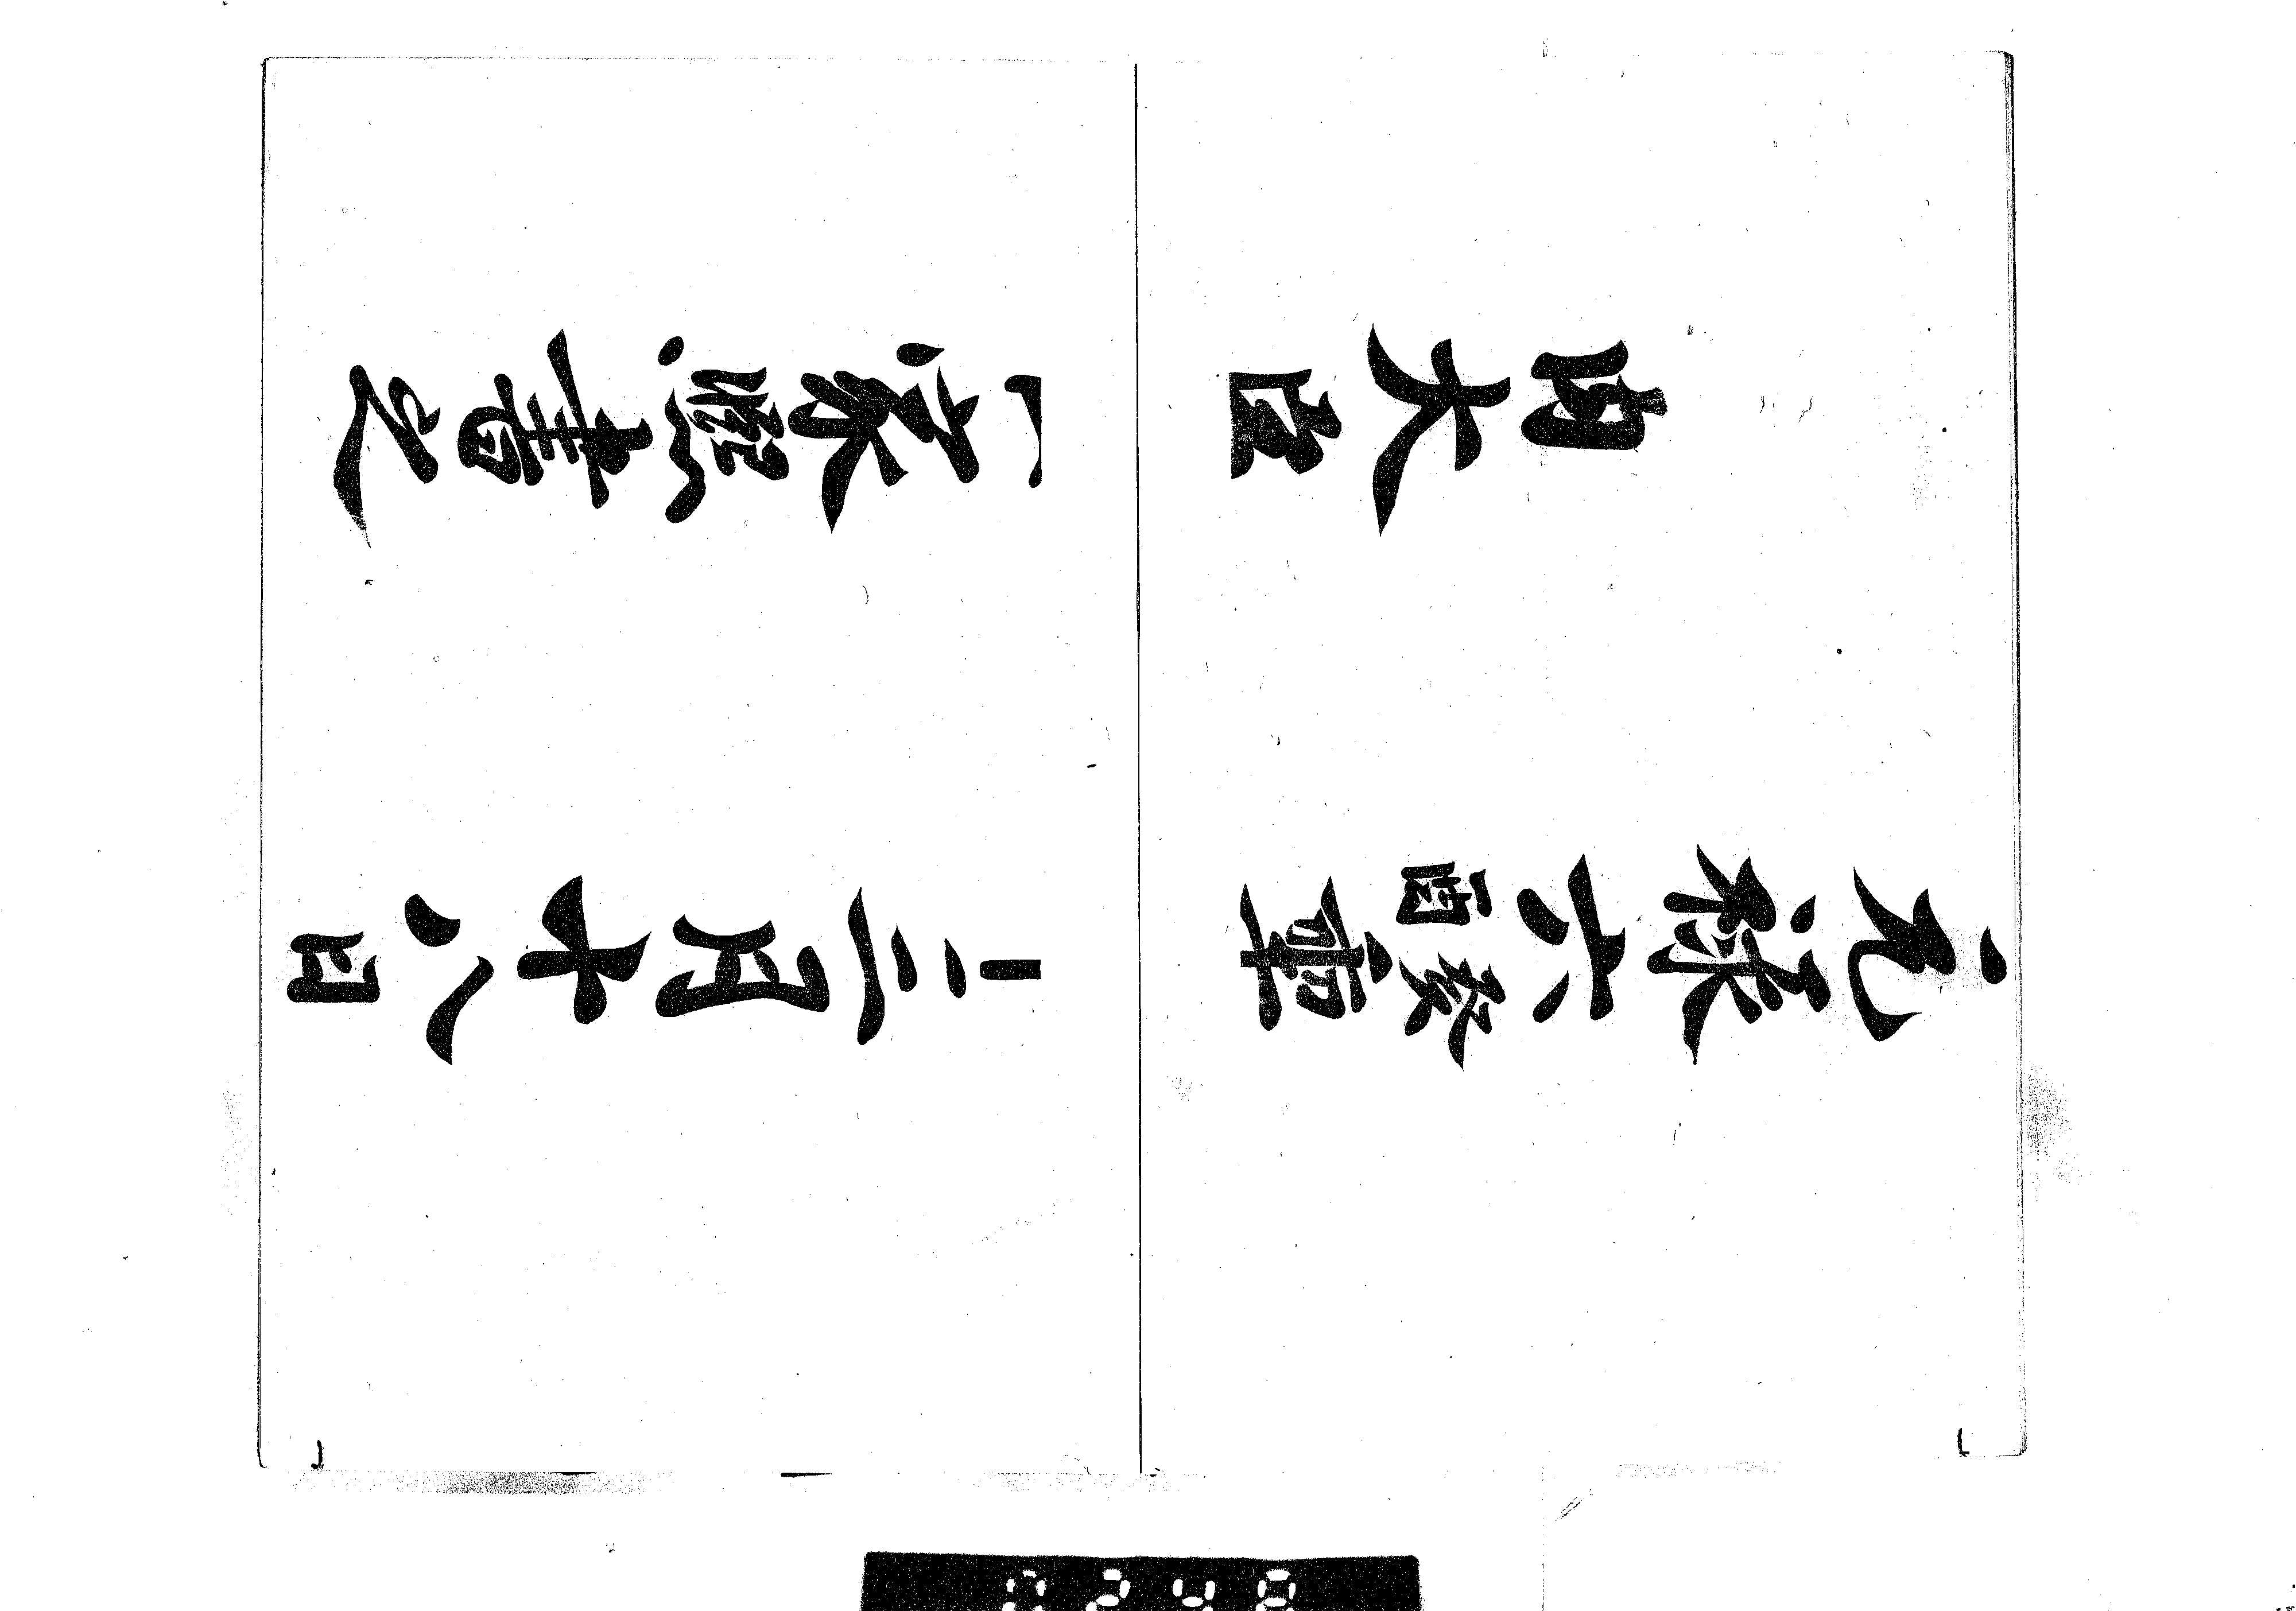 元禄六癸酉年三月十八日
内大臣家熙書之